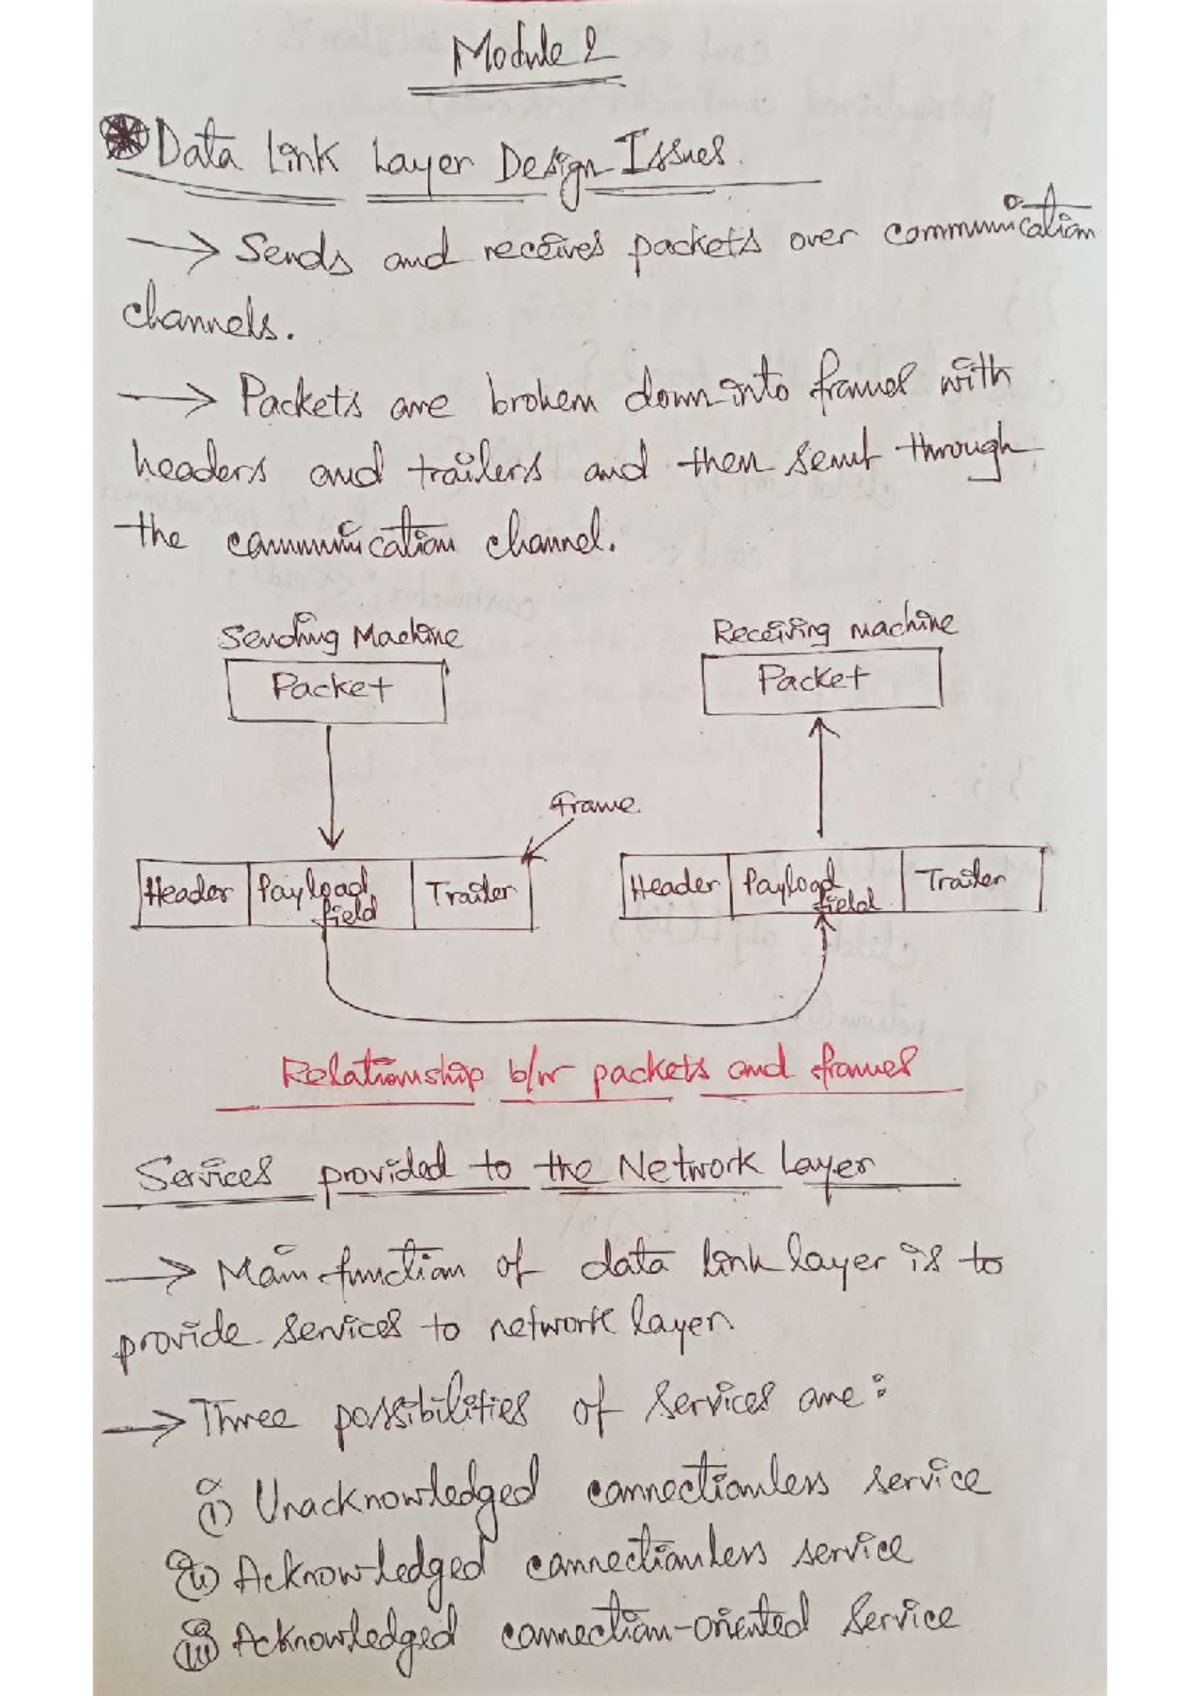 Module 2
Data Link Layer Design Issues.
→ Sends and receives packets over communication
channels.
→ Packets are broken down into frames with
headers and trailers and then sent through
the communication channel.
Sending Machine Receiving machine
Packet Packet
Frame
Header Payload field Trailer Header Payload field Trailer
Relationship b/w packets and frames
Services provided to the Network Layer
→ Main function of data link layer is to
provide services to network layer.
→ Three possibilities of services are:
(i) Unacknowledged connectionless service
(ii) Acknowledged connectionless service
(iii) Acknowledged connection-oriented service